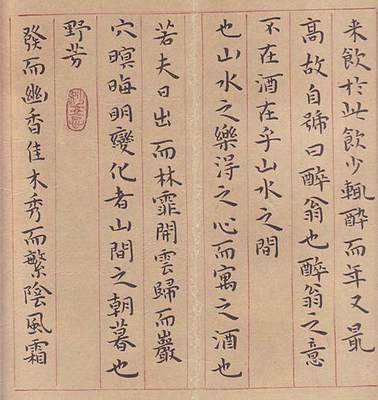 来飲於此飲少輒醉而年又最
高故自號曰醉翁也醉翁之意
不在酒在乎山水之間
也山水之樂得之心而寓之酒也
若夫日出而林霏開雲歸而巖
穴暝晦明變化者山間之朝暮也
野芳
發而幽香佳木秀而繁陰風霜